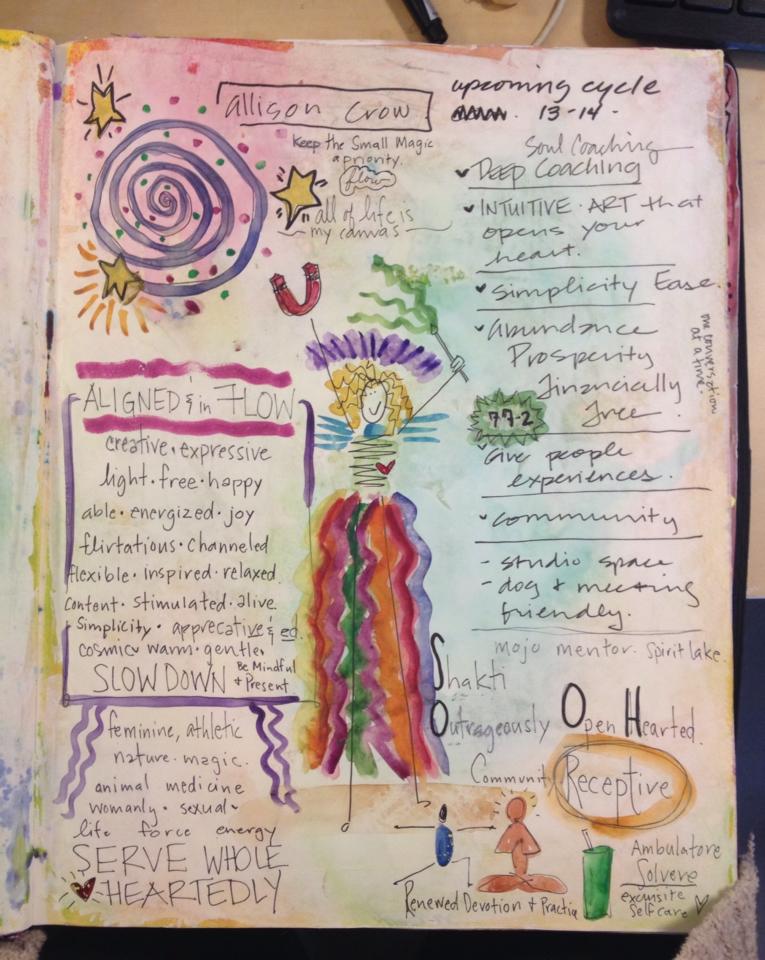 allison crow
Keep the Small Magic
a priority.
flow
all of life is
my canvas
upcoming cycle
13-14.
Soul Coaching
✓ Deep Coaching
✓ INTUITIVE · ART that
opens your
heart.
✓ Simplicity Ease.
✓ abundance
Prosperity
financially
free.
one conversation
at a time.
77-2
✓ Give people
experiences.
✓ community
- studio space
- dog + meeting
friendly.
mojo mentor. Spirit Lake.
ALIGNED & in FLOW
creative · expressive
light · free · happy
able · energized · joy
flirtatious · channeled
flexible · inspired · relaxed.
content · stimulated · alive.
Simplicity · apprecative & ed.
cosmic warm · gentle
SLOW DOWN Be Mindful
& Present
feminine, athletic
nature · magic.
animal medicine
womanly · sexual
life force energy
SERVE WHOLE
HEARTEDLY
Shakti
Outrageously Open Hearted.
Community Receptive
Renewed Devotion + Practic
Ambulatore
Solvere
exquisite
Selfcare